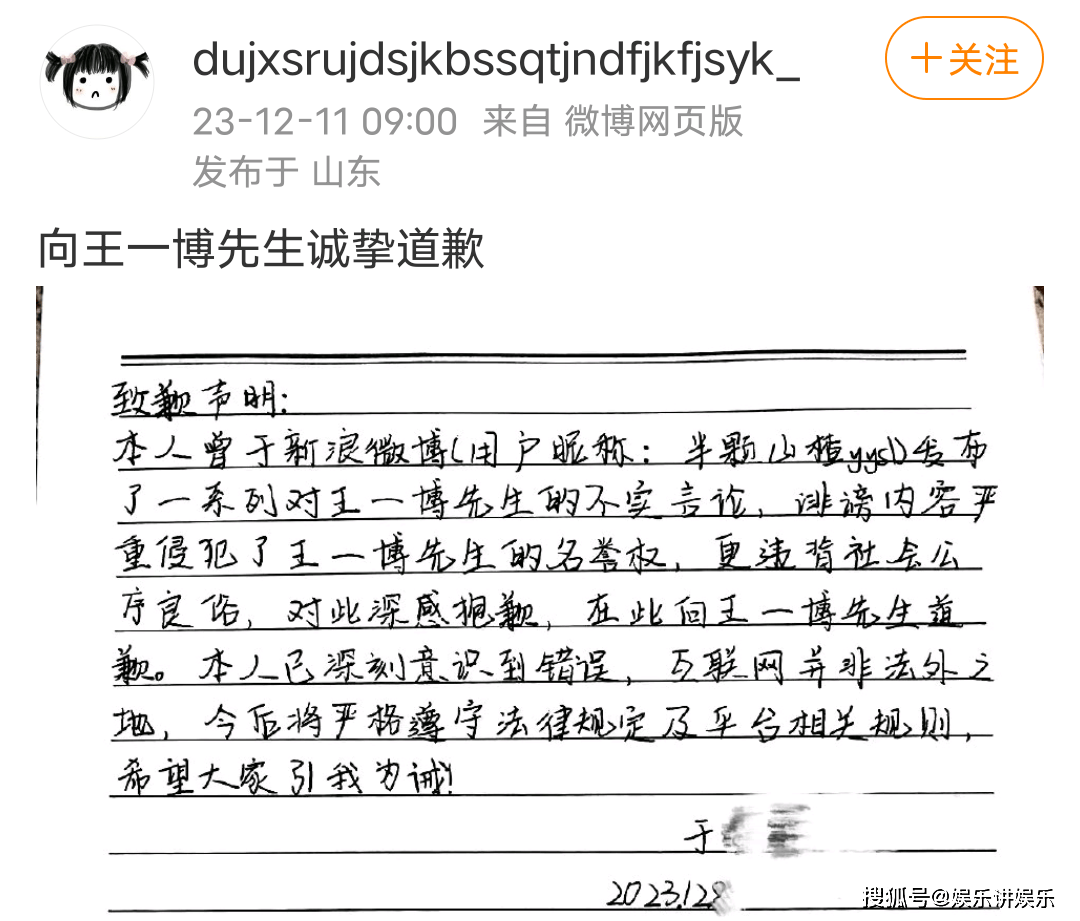 dujxsrujdsjkbssqtjndfjkfjsyk_
+关注
23-12-11 09:00 来自 微博网页版
发布于 山东
向王一博先生诚挚道歉
致歉声明:
本人曾于新浪微博(用户昵称: 半颗山楂yysl)发布
了一系列对王一博先生的不实言论, 诽谤内容严
重侵犯了王一博先生的名誉权, 更违背社会公
序良俗, 对此深感抱歉, 在此向王一博先生道
歉。本人已深刻意识到错误, 互联网并非法外之
地, 今后将严格遵守法律规定及平台相关规则,
希望大家引我为诫!
于
2023.12
搜狐号@娱乐讲娱乐